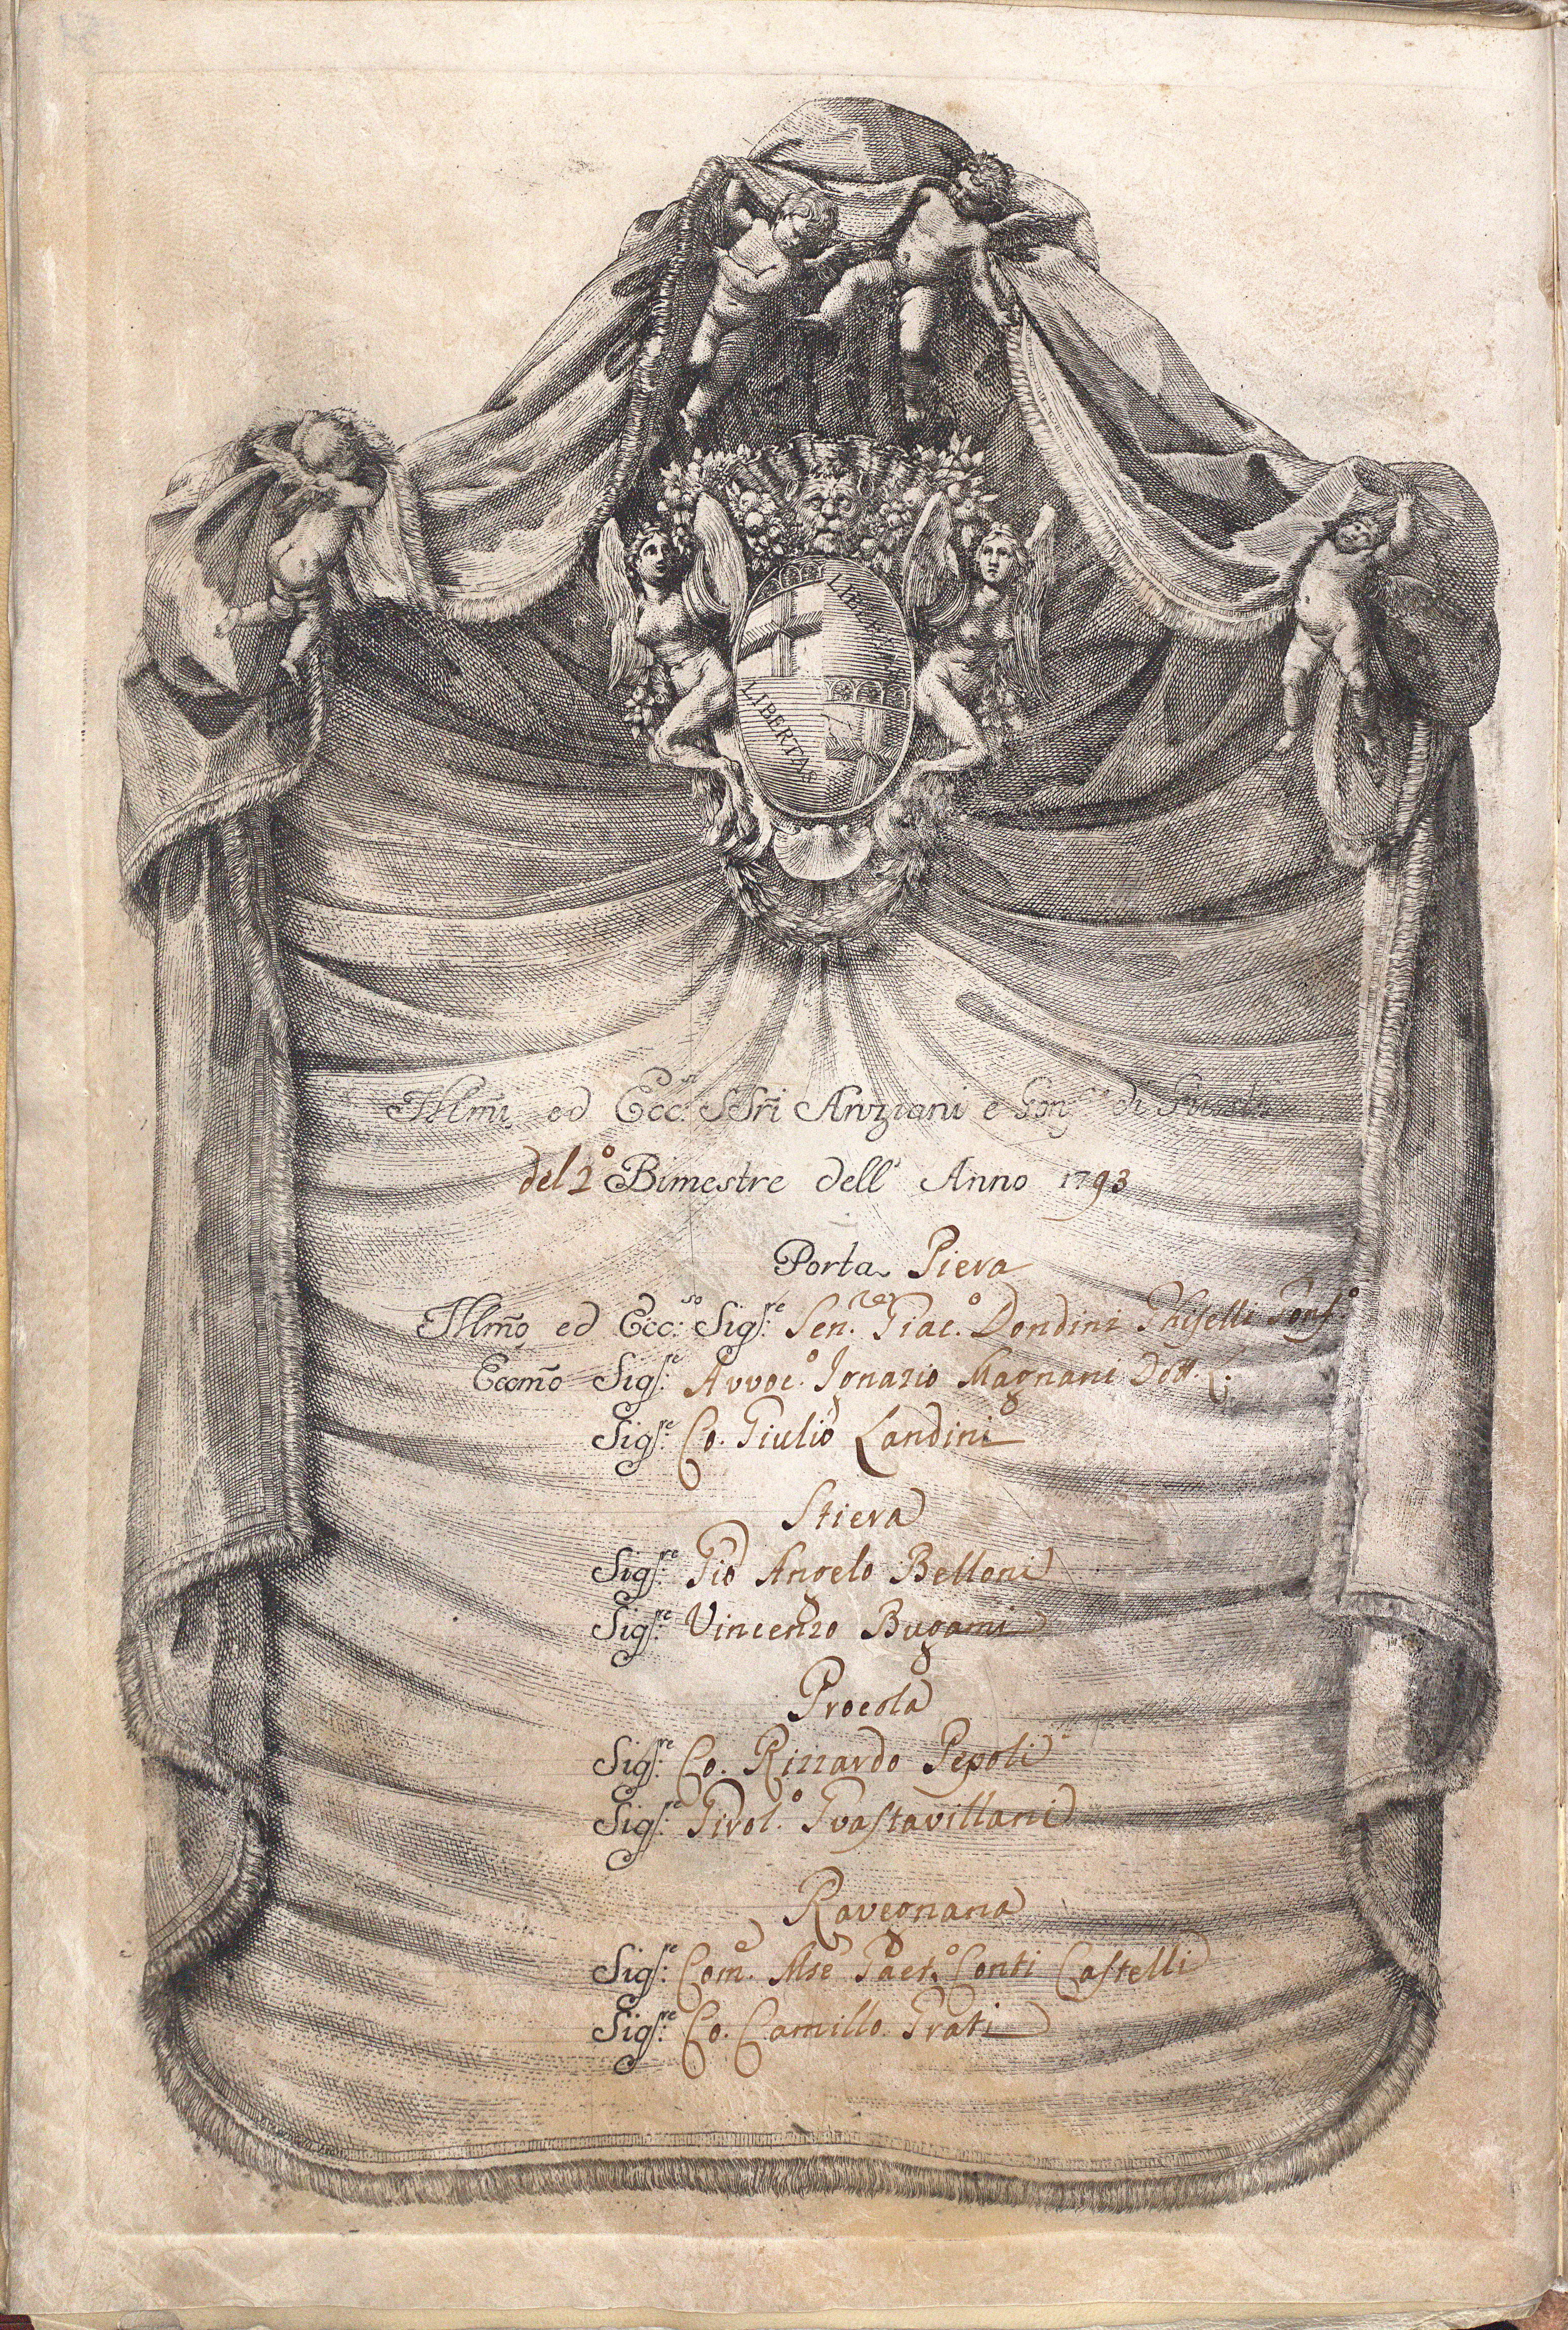 LIBERTAS
LIBERTAS
Illmi ed Ecc.si SSri Anziani e di
del 2º Bimestre dell' Anno 1793
Porta Piera
Illmo ed Ecc.so Sigre Sen.re Giac.º Dondini Ghiselli Gonf.º
Eccmo Sigre Avvoc.º Ignazio Magnani Dott. C.
Sigre Co. Giulio Landini
Stiera
Sigre Gio Angelo Belloni
Sigre Vincenzo Bugami
Procola
Sigre Co. Rizzardo Pepoli
Sigre Girol.º Guastavillani
Ravegnana
Sigre Com.e Mse Gaet.º Conti Castelli
Sigre Co. Camillo Grati